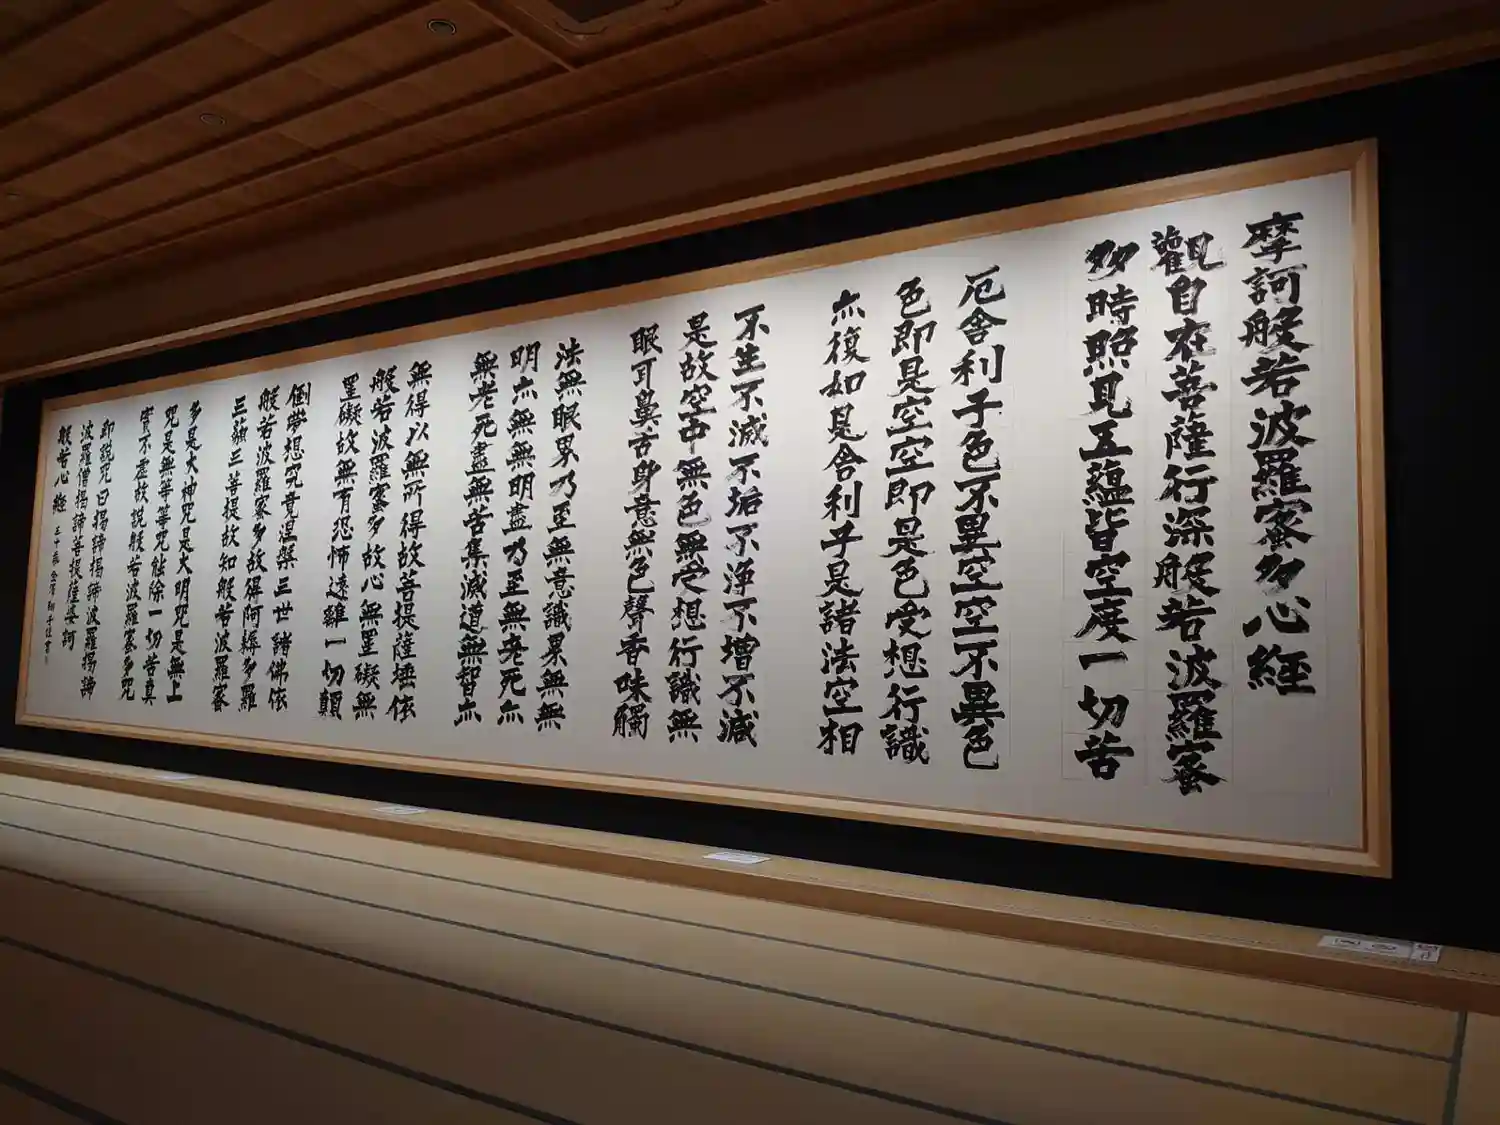 摩訶般若波羅蜜多心経
觀自在菩薩行深般若波羅蜜
多時照見五蘊皆空度一切苦
厄舎利子色不異空空不異色
色即是空空即是色受想行識
亦復如是舎利子是諸法空相
不生不滅不垢不浄不増不減
是故空中無色無受想行識無
眼耳鼻舌身意無色聲香味觸
法無眼界乃至無意識界無無
明亦無無明盡乃至無老死亦
無老死盡無苦集滅道無智亦
無得以無所得故菩提薩埵依
般若波羅蜜多故心無罣礙無
罣礙故無有恐怖遠離一切顛
倒夢想究竟涅槃三世諸佛依
般若波羅蜜多故得阿耨多羅
三藐三菩提故知般若波羅蜜
多是大神咒是大明咒是無上
咒是無等等咒能除一切苦真
實不虚故説般若波羅蜜多咒
即説咒曰揭諦揭諦波羅揭諦
波羅僧揭諦菩提薩婆訶
般若心経
金澤翔子